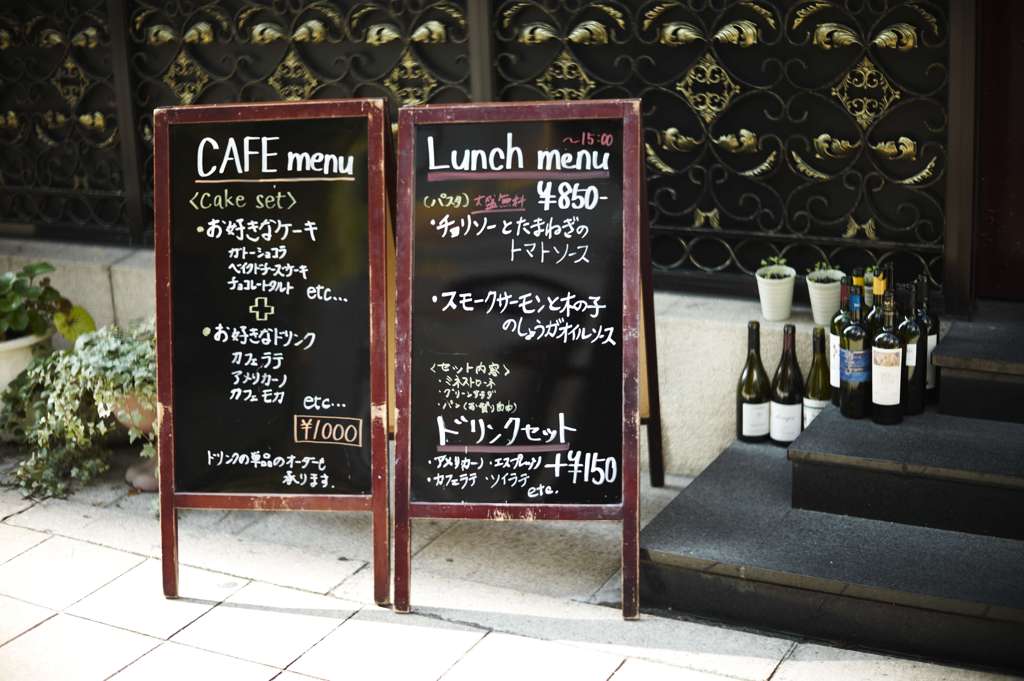 CAFE menu
<Cake set>
・お好きなケーキ
ガトーショコラ
ベイクドチーズケーキ
チョコレートタルト etc...
+
・お好きなドリンク
カフェラテ
アメリカーノ
カフェモカ
etc...
¥1000
ドリンクの単品のオーダーも
承ります.
〜15:00
Lunch menu
(パスタ) 大盛無料 ¥850-
・チョリソーとたまねぎの
トマトソース
・スモークサーモンと木の子
のしょうがオイルソース
<セット内容>
・ミネストローネ
・グリーンサラダ
・パン(お替り自由)
ドリンクセット
・アメリカーノ ・エスプレッソ +¥150
・カフェラテ ・ソイラテ
etc.